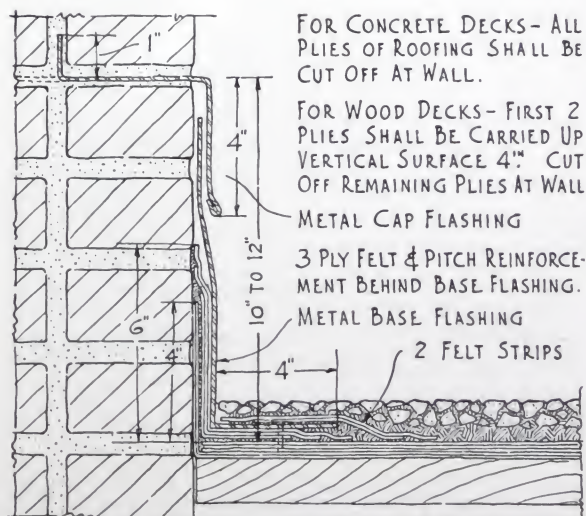 1"
FOR CONCRETE DECKS - ALL
PLIES OF ROOFING SHALL BE
CUT OFF AT WALL.
FOR WOOD DECKS - FIRST 2
PLIES SHALL BE CARRIED UP
VERTICAL SURFACE 4". CUT
OFF REMAINING PLIES AT WALL
4"
METAL CAP FLASHING
10" TO 12"
3 PLY FELT & PITCH REINFORCE-
MENT BEHIND BASE FLASHING.
METAL BASE FLASHING
6"
4"
4"
2 FELT STRIPS